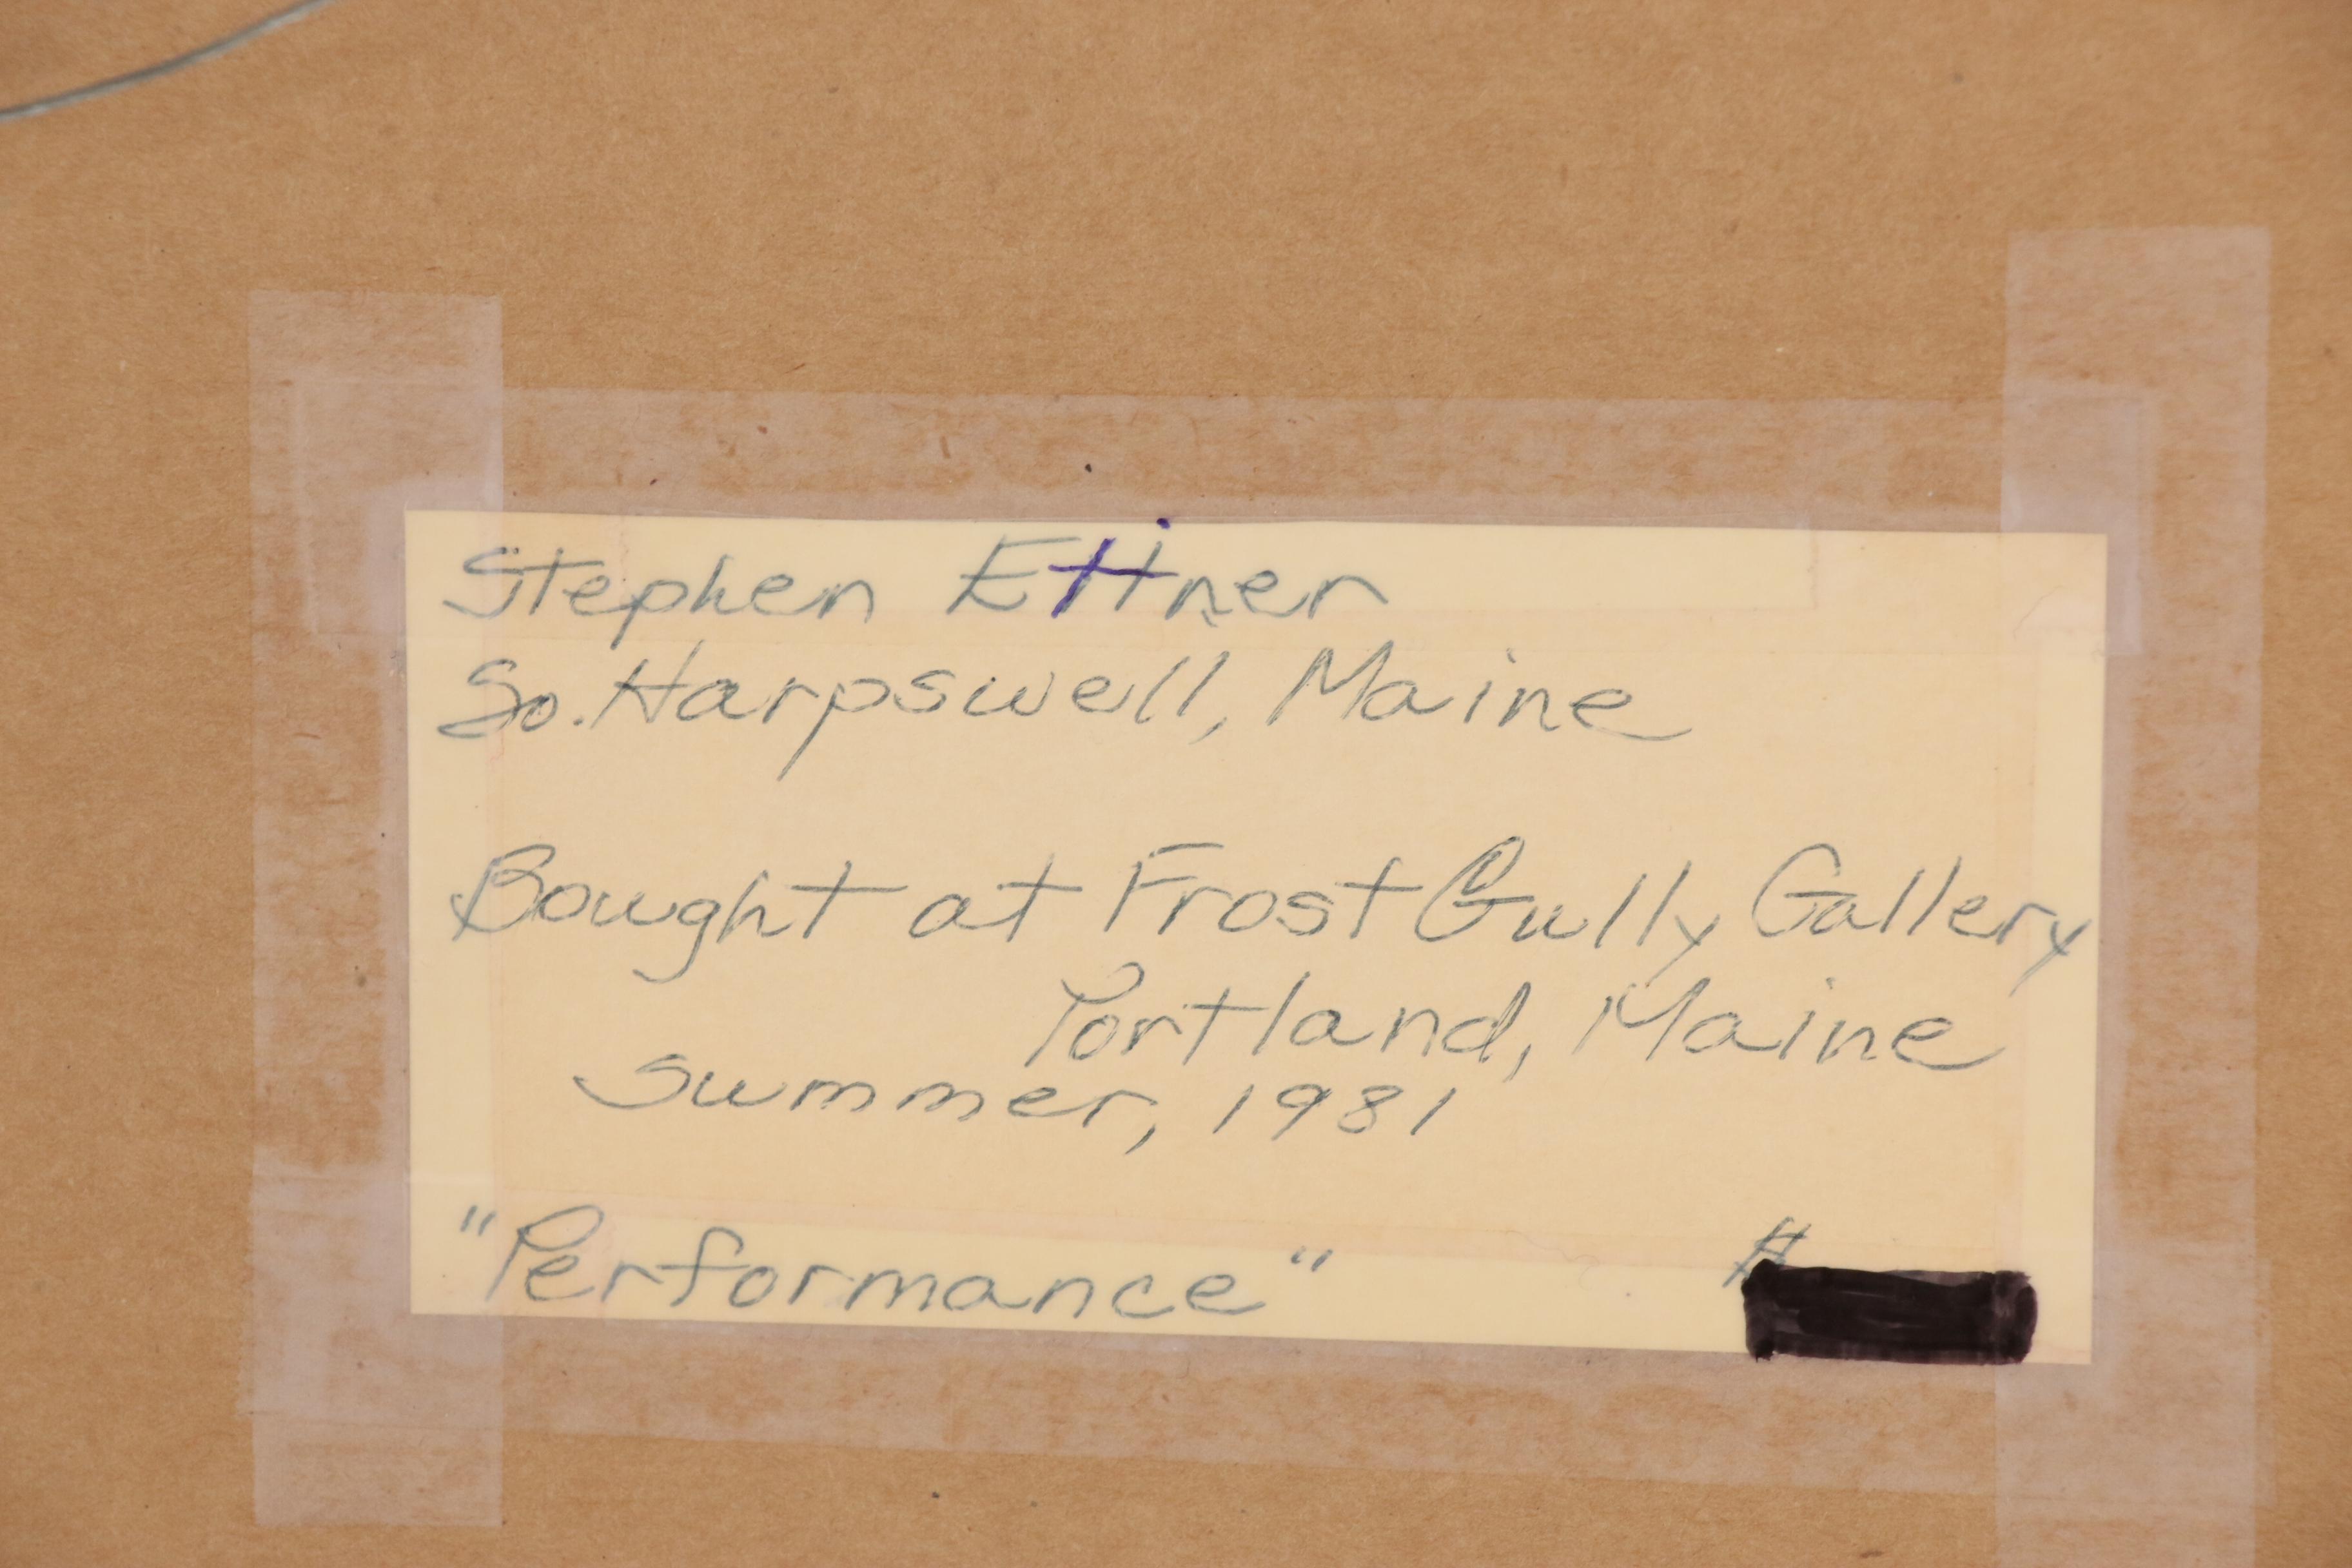 Stephen Ettner
So. Harpswell, Maine
Bought at Frost Gully Gallery
Portland, Maine
Summer, 1981
"Performance" #